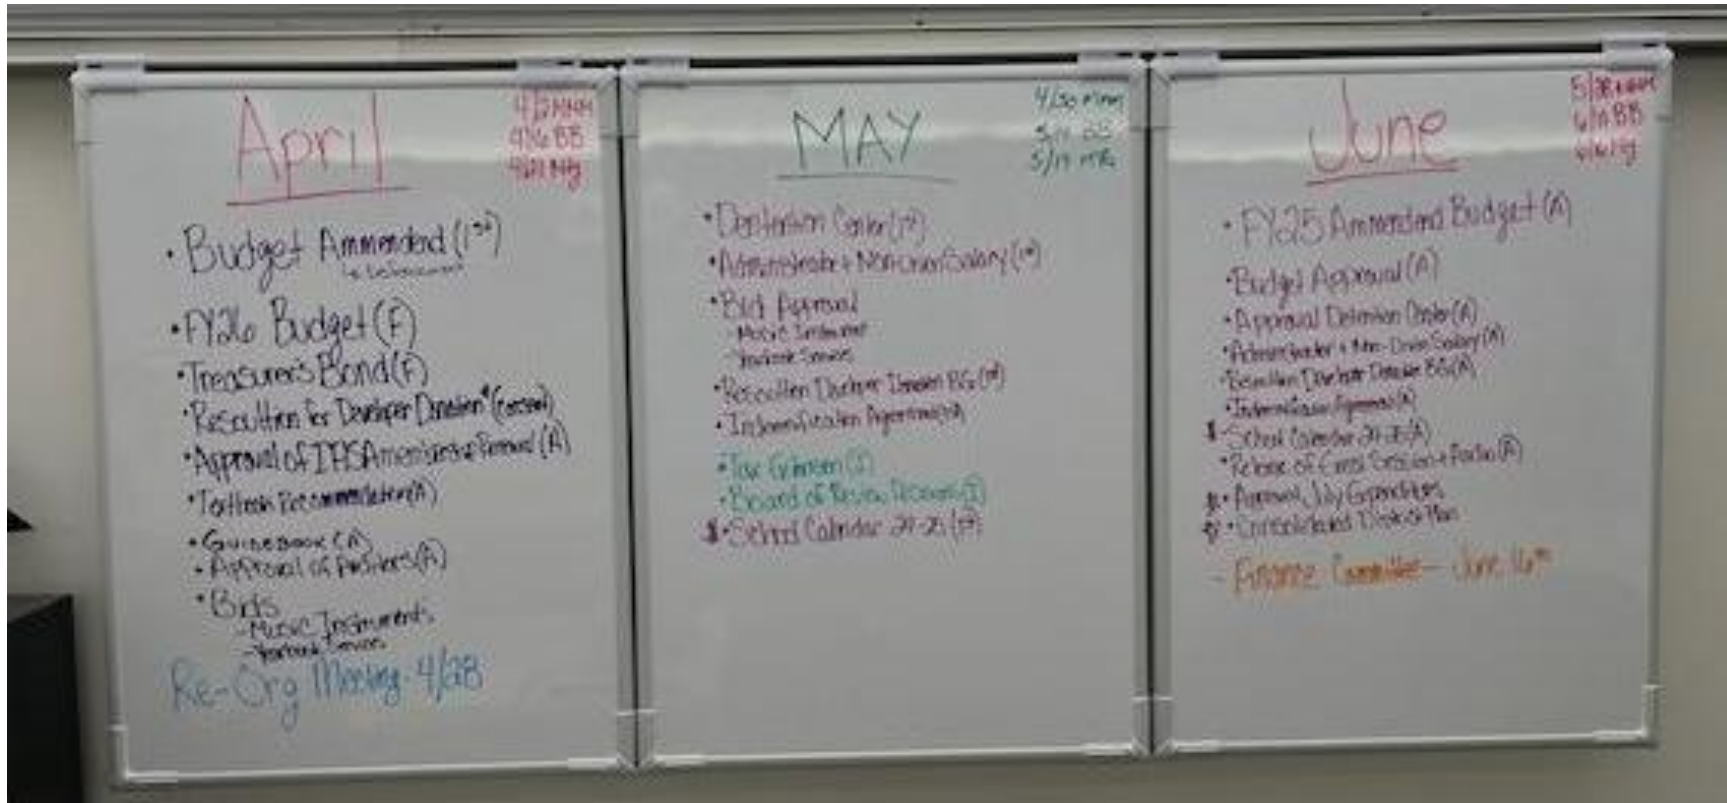 April
4/2 MNM
4/16 BB
4/21 Mtg
• Budget Ammendend (1st)
• FY26 Budget (F)
• Treasurer's Bond (F)
• Resolution for Developer Donation* (consent)
• Approval of IHSA Membership Renewal (A)
• Textbook Recommendation (A)
• Guidebook (A)
• Approval of Positions (A)
• Bids
- Music Instruments
- Yearbook Services
Re-Org Meeting - 4/28
MAY
4/30 MNM
5/19 Mtg
• Dentention Center (1st)
• Administrator + Non-Union Salary (1st)
• Bid Approval
- Music Instrument
- Yearbook Services
• Resolution Developer Donation BG (1st)
• Indemnification Agreement
• Board of Review Decisions (I)
$ • School Calendar 24-25 (1st)
June
5/28 MNM
6/11 BB
6/16 Mtg
• FY25 Ammendend Budget (A)
• Budget Approval (A)
• Approval Detention Center (A)
• Administrator + Non-Union Salary (A)
• Resolution Developer Donation BG (A)
• Indemnification Agreement (A)
$ - School Calendar 24-25 (A)
• Release of Session + Portion (A)
$ • Approval July Expenditures
$ • Consolidated District Plan
- Finance Committee - June 16th